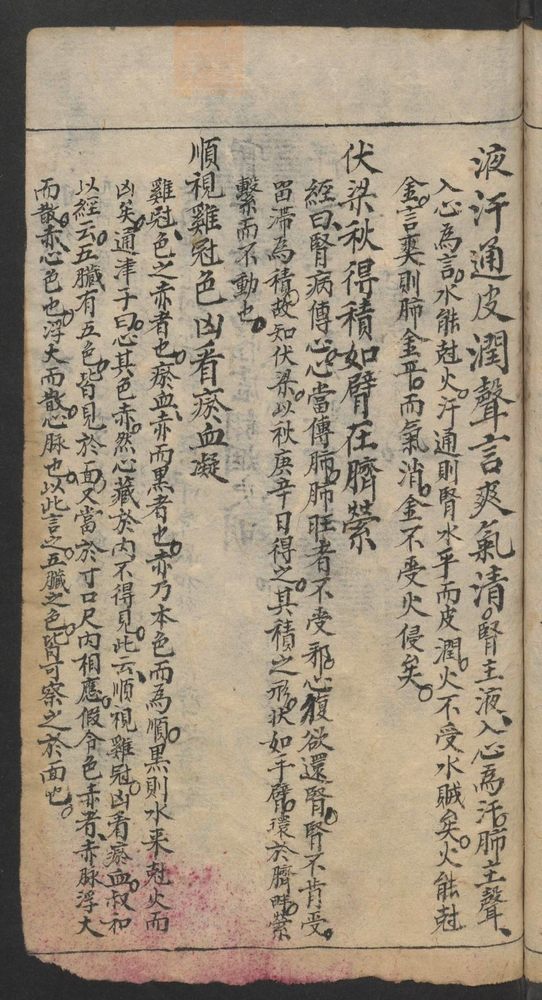 液汗通皮潤聲言爽氣清腎主液入心為汗肺主聲
入心為言水能尅火汗通則腎水平而皮潤火不受水賊矣火能尅
金言爽則肺金平而氣消金不受火侵矣
伏梁秋得積如臂在臍縈
經曰腎病傳心心當傳肺肺旺者不受邪心復欲還腎腎不肯受
留滯為積故知伏梁以秋庚辛日得之其積之形狀如手臂環於臍畔縈
繫而不動也
順視雞冠色凶看瘀血凝
雞冠色之赤者也瘀血赤而黑者也赤乃本色而為順黑則水来尅火而
凶矣通津子曰心其色赤然心藏於内不得見此云順視雞冠凶看瘀血叔和
以經云五臟有五色皆見於面又當於寸口尺内相應假令色赤者赤脉浮大
而散赤心色也浮大而散心脉也以此言之五臟之色皆可察之於面也